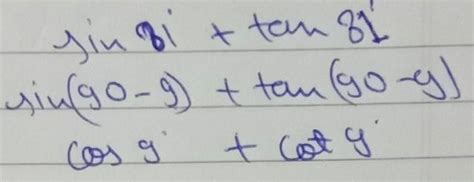 sin 81° + tan 81°
sin(90-9) + tan(90-9)
cos 9° + cot 9°